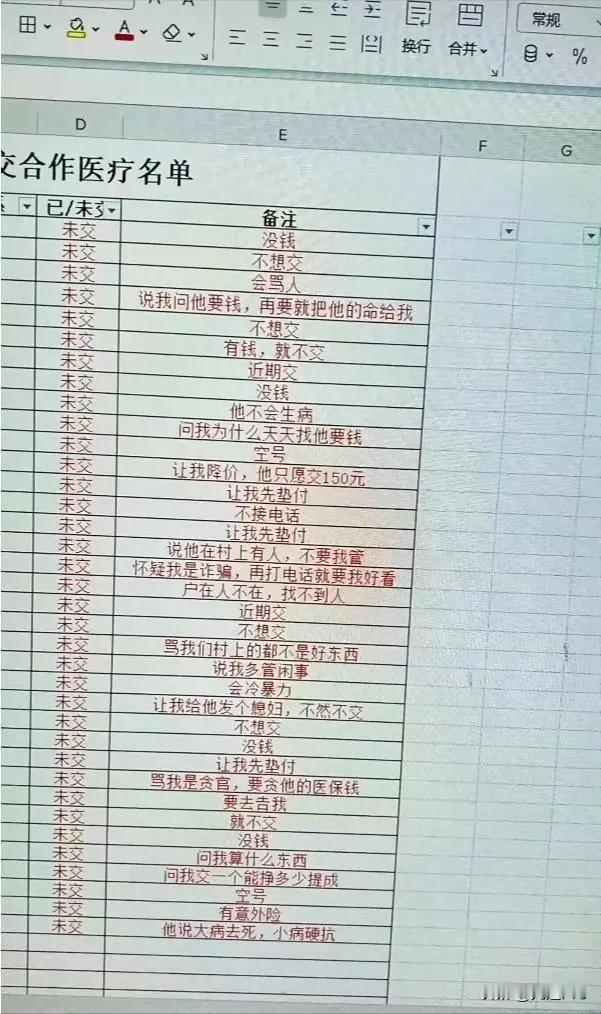 常规
换行
合并
%
D E F G
交合作医疗名单
已/未交 备注
未交 没钱
未交 不想交
未交 会骂人
未交 说我问他要钱，再要就把他的命给我
未交 不想交
未交 有钱，就不交
未交 近期交
未交 没钱
未交 他不会生病
未交 问我为什么天天找他要钱
未交 空号
未交 让我降价，他只愿交150元
未交 让我先垫付
未交 不接电话
未交 让我先垫付
未交 说他在村上有人，不要我管
未交 怀疑我是诈骗，再打电话就要我好看
未交 户在人不在，找不到人
未交 近期交
未交 不想交
未交 骂我们村上的都不是好东西
未交 说我多管闲事
未交 会冷暴力
未交 让我给他发个媳妇，不然不交
未交 不想交
未交 没钱
未交 让我先垫付
未交 骂我是贪官，要贪他的医保钱
未交 要去告我
未交 就不交
未交 没钱
未交 问我算什么东西
未交 问我交一个能挣多少提成
未交 空号
未交 有意外险
未交 他说大病去死，小病硬抗